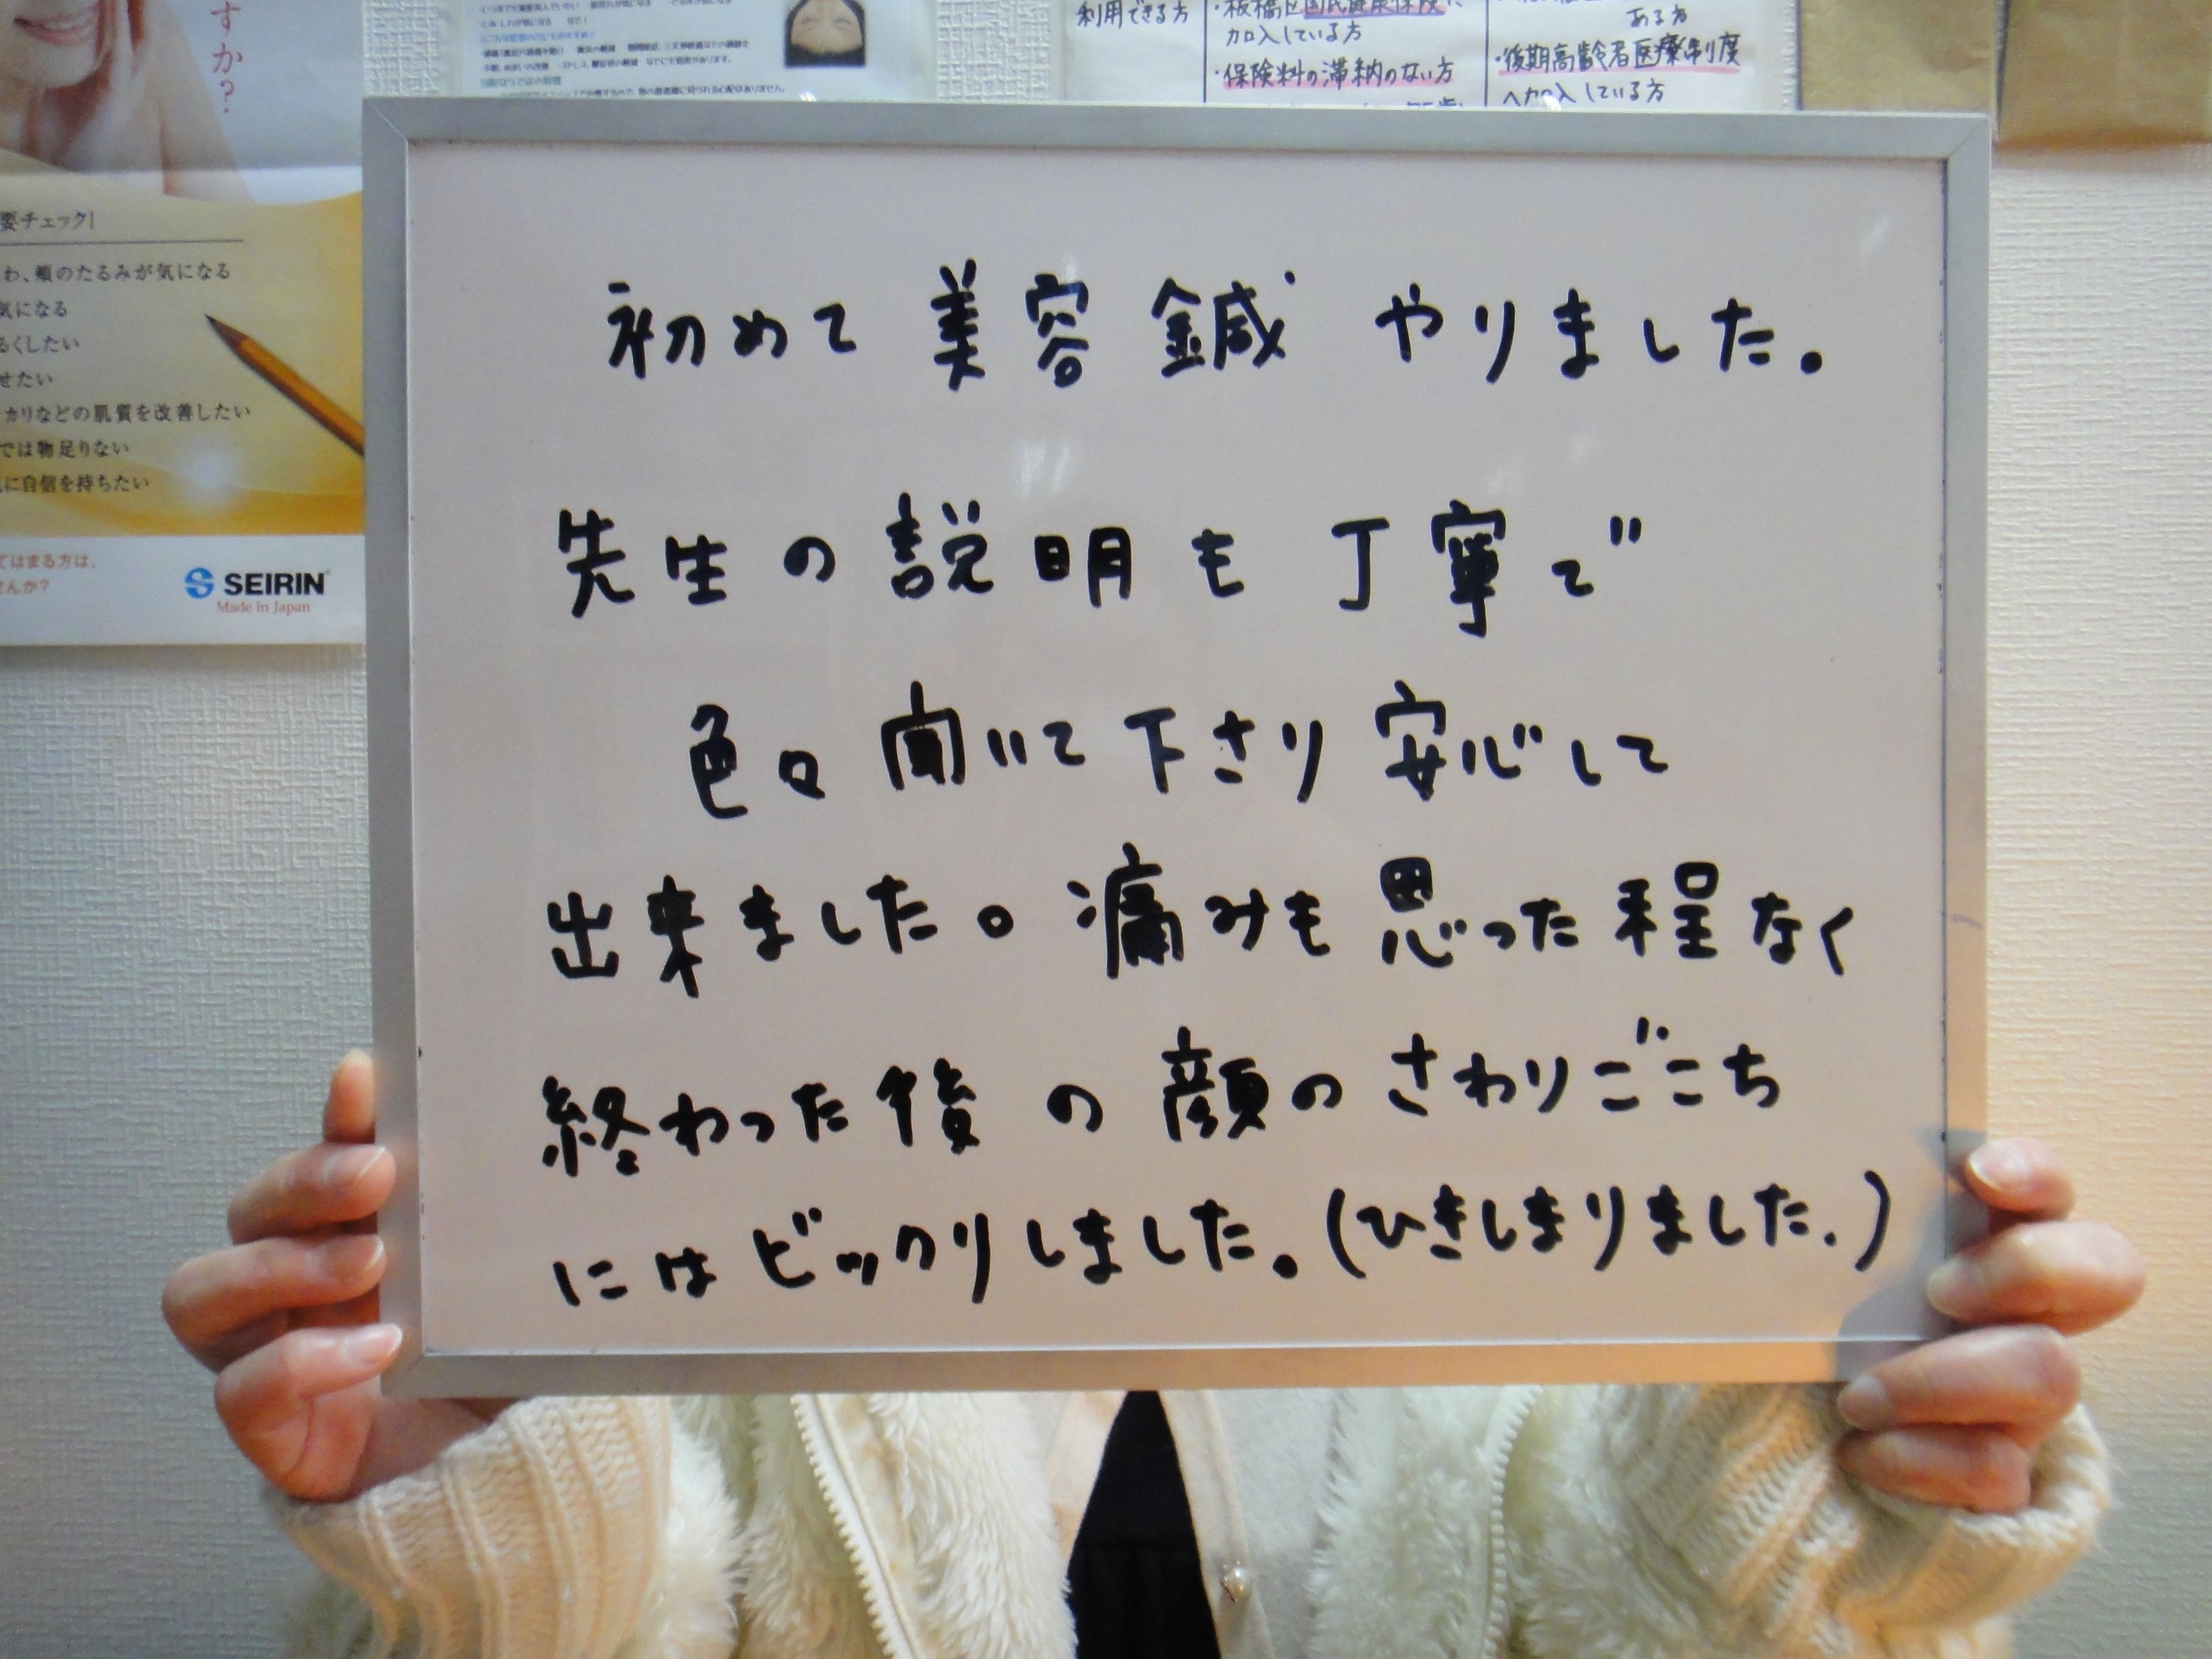 すか?
要チェック!
わ、頬のたるみが気になる
気になる
るくしたい
せたい
カリなどの肌質を改善したい
では物足りない
に自信を持ちたい
てはまる方は、
せんか?
SEIRIN
Made in Japan
利用できる方
・板橋区国民健康保険に
加入している方
・保険料の滞納のない方
ある方
・後期高齢者医療制度
へ加入している方
初めて美容鍼やりました。
先生の説明も丁寧で
色々聞いて下さり安心して
出来ました。痛みも思った程なく
終わった後の顔のさわりごこち
にはビックリしました。(ひきしまりました.)